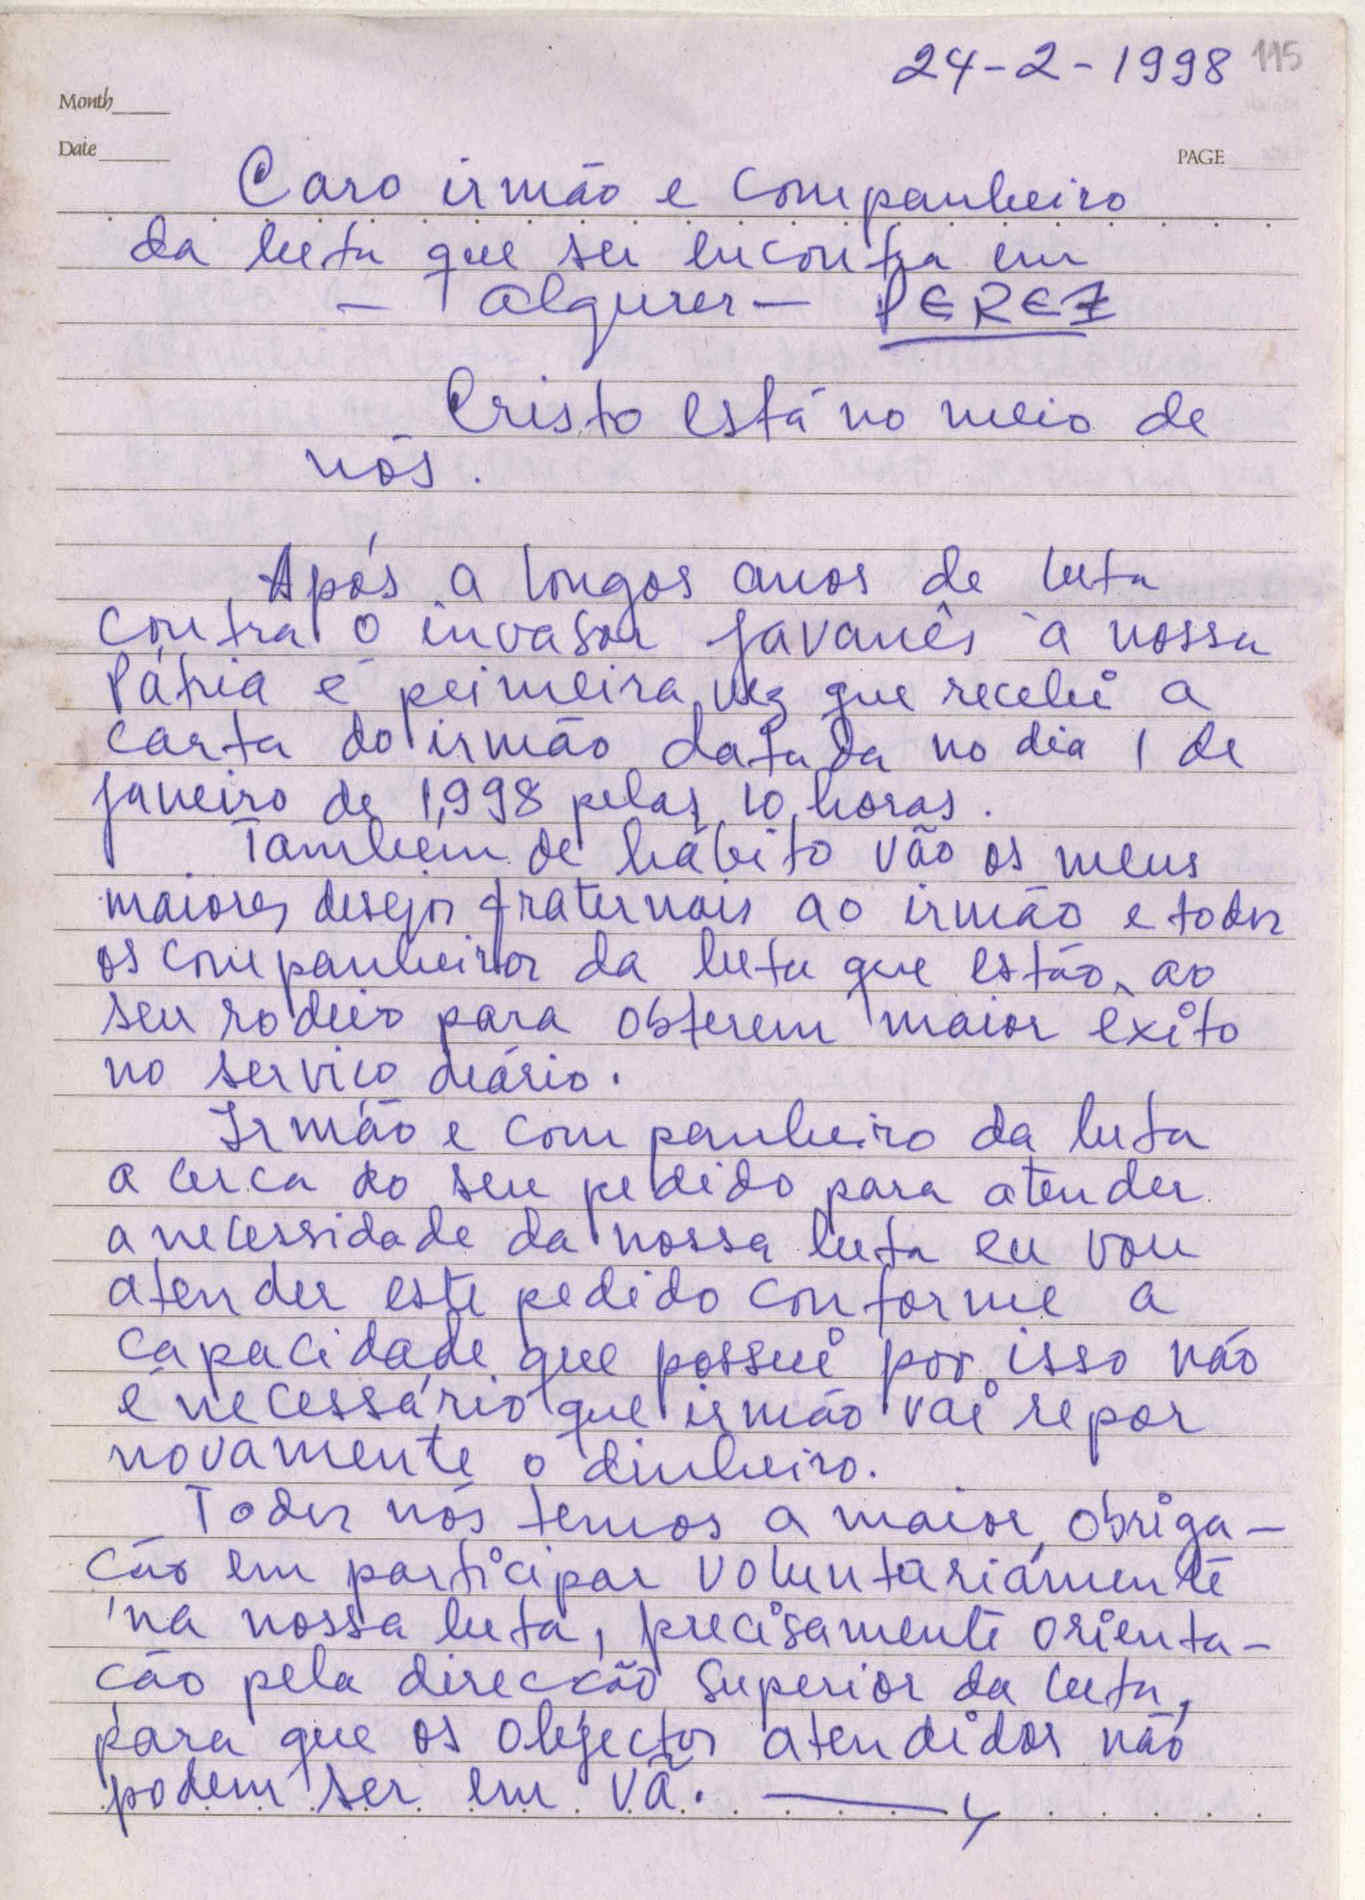 24-2-1998 115
Month
Date
PAGE
Caro irmão e companheiro
da luta que sei encontra em
- algures - PEREZ
Cristo está no meio de
nós.
Após a longos anos de luta
contra o invasor javanês à nossa
Pátria é peimeira vez que recebi a
carta do irmão datada no dia 1 de
janeiro de 1,998 pelas 10 horas.
Também de hábito vão os meus
maiores desejos fraternais ao irmão e todos
os companheiros da luta que estão ao
seu rodeio para obterem maior êxito
no servico diário.
Irmão e companheiro da luta
a cerca do seu pedido para atender
a necessidade da nossa luta eu vou
atender este pedido conforme a
capacidade que possui por isso não
é necessário que irmão vai repor
novamente o dinheiro.
Todos nós temos a maior obriga-
cão em participar voluntáriamente
na nossa luta, precisamente orienta-
cão pela direccão superior da luta,
para que os objectos atendidos não
podem ser em vã.